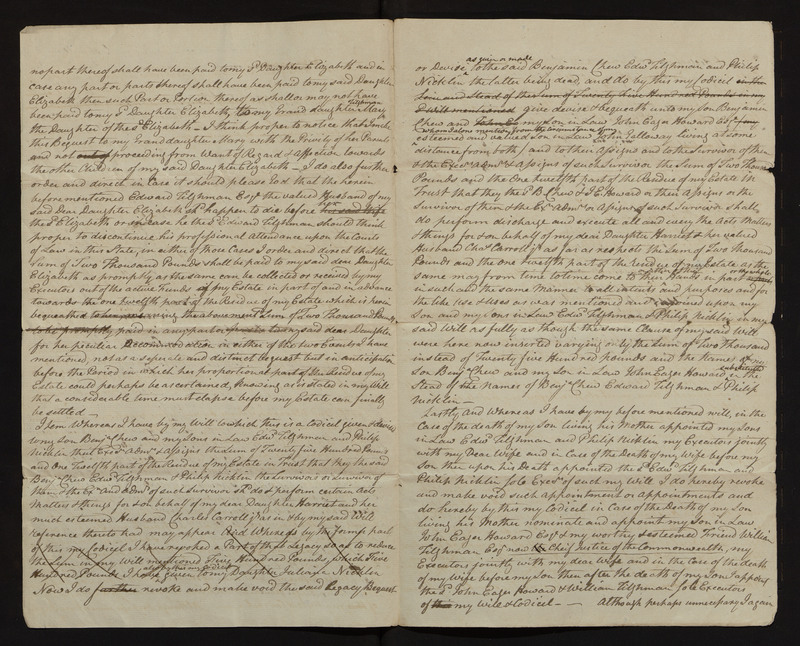 no part thereof shall have been paid to my sd Daughter Elizabeth and in
case any part or parts thereof shall have been paid to my said Daughter
Elizabeth then such Part or Portion thereof as shall or may not have
been paid to my sd Daughter Elizabeth, to my Grand daughter Mary Tilghman
the Daughter of the sd Elizabeth. I think proper to notice that I make
this Bequest to my Granddaughter Mary with the Privity of her Parents
and not out of proceeding from Want of Regard & affection towards
the other Children of my said Daughter Elizabeth — I do also further
order and direct in Case it should please God that the herein
before mentioned Edward Tilghman Esqr the valued Husband of my
said Dear Daughter Elizabeth sd happen to die before his said Wife
the sd Elizabeth or in case he the sd Edward Tilghman should think
proper to discontinue his professional attendance upon the Courts
of Law in this State, in either of those Cases I order and direct that the
Sum of Two Thousand Pounds shall be paid to my said dear Daughter
Elizabeth as promptly as the same can be collected or received by my
Executors out of the active Funds of my Estate in part of and in advance
towards the one twelfth part of the Residue of my Estate which is herein
bequeathed the abovement Sum of Two Thousand Pounds
paid in any part or to my said dear Daughter
for her peculiar Accommodation in either of the two Events I have
mentioned, not as a seperate and distinct Bequest but in anticipation
before the Period in which her proportional part of the Residue of my
Estate could perhaps be ascertained, knowing as is stated in my Will
that a considerable time must elapse before my Estate can finally
be settled —
Item Whereas I have by my Will to which this is a Codicil given & devised
to my Son Benjn Chew and my Sons in Law Edwd Tilghman and Philip
Nicklin their Exrs Admrs & assigns the Sum of Twenty five Hund Pounds
and One Twelfth part of the Residue of my Estate in Trust that they the said
Benjn Chew Edwd Tilghman & Philip Nicklin the Survivors or Survivor of
them & the Exrs and Admrs of such Survivor shd do & perform certain Acts
Matters & things for & on behalf of my dear Daughter Harriet and her
much esteemed Husband Charles Carroll Jr as in & by my said Will
reference thereto had may appear And Whereas by the former part
of this my Codicil I have revoked a Part of that Legacy so as to reduce
the Sum in my Will mentioned Five Hundred Pounds, which Five
Hundred Pounds I have given to my Daughter Juliana Nicklin
Now I do further revoke and make void the said Legacy Bequest
or Devise as given & made to the said Benjamin Chew Edwd Tilghman and Philip
Nicklin the latter being dead, and do by this my Codicil in the
Lieu and Stead of the Sum of Twenty five Hundred Pounds in my
sd Will mentioned give devise & bequeath unto my Son Benjamin
Chew and my Son in Law John Eager Howard Esqr
esteemed and valued Son in Law John Galloway living at some
distance from both) and to their Assigns and to the Survivor of them
& the Exrs Admrs & Assigns of such Survivor the Sum of Two Thousand
Pounds and the One twelfth part of the Residue of my Estate In
Trust that they the sd B. Chew & J E Howard or their Assigns or the
Survivor of them & the Exrs Admrs or Assigns of such Survivor shall
do perform discharge and execute all and every the Acts Matters
& things for & on behalf of my dear Daughter Harriet & her valued
Husband Chas Carroll Jr as far as respects the Sum of Two Thousand
Pounds and the One twelfth part of the Residue of my Estate as the
same may from time to time come to their Hands in part or the whole
in such and the same Manner to all intents and purposes and for
the like Use & Uses as was mentioned and upon my
Son and my Sons in Law Edwd Tilghman & Philip Nicklin in my
said Will as fully as though the same Clause of my said Will
were here now inserted varying only the Sum of Two Thousand
instead of Twenty five Hundred pounds and the Names of my
Son Benjn Chew and my Son in Law John Eager Howard substituted in the
Stead of the Names of Benjn Chew Edward Tilghman & Philip
Nicklin —
Lastly And Whereas I have by my before mentioned will, in the
Case of the death of my Son living his Mother appointed my Sons
in Law Edwd Tilghman and Philip Nicklin my Executors jointly
with my Dear Wife and in Case of the Death of my Wife before my
Son then upon his Death appointed the sd Edwd Tilghman and
Philip Nicklin Sole Exrs of such my Will. I do hereby revoke
and make void such appointment or appointments and
do hereby by this my Codicil in Case of the Death of my Son
living his Mother nominate and appoint my Son in Law
John Eager Howard Esqr & my worthy & esteemed Friend William
Tilghman Esqr now Chief Justice of the Commonwealth, my
Executors jointly with my dear Wife and in the Case of the death
of my Wife before my Son then after the death of my Son I appoint
the sd John Eager Howard & William Tilghman Sole Executors
of this my Will & Codicil — — Although perhaps unnecessary I again